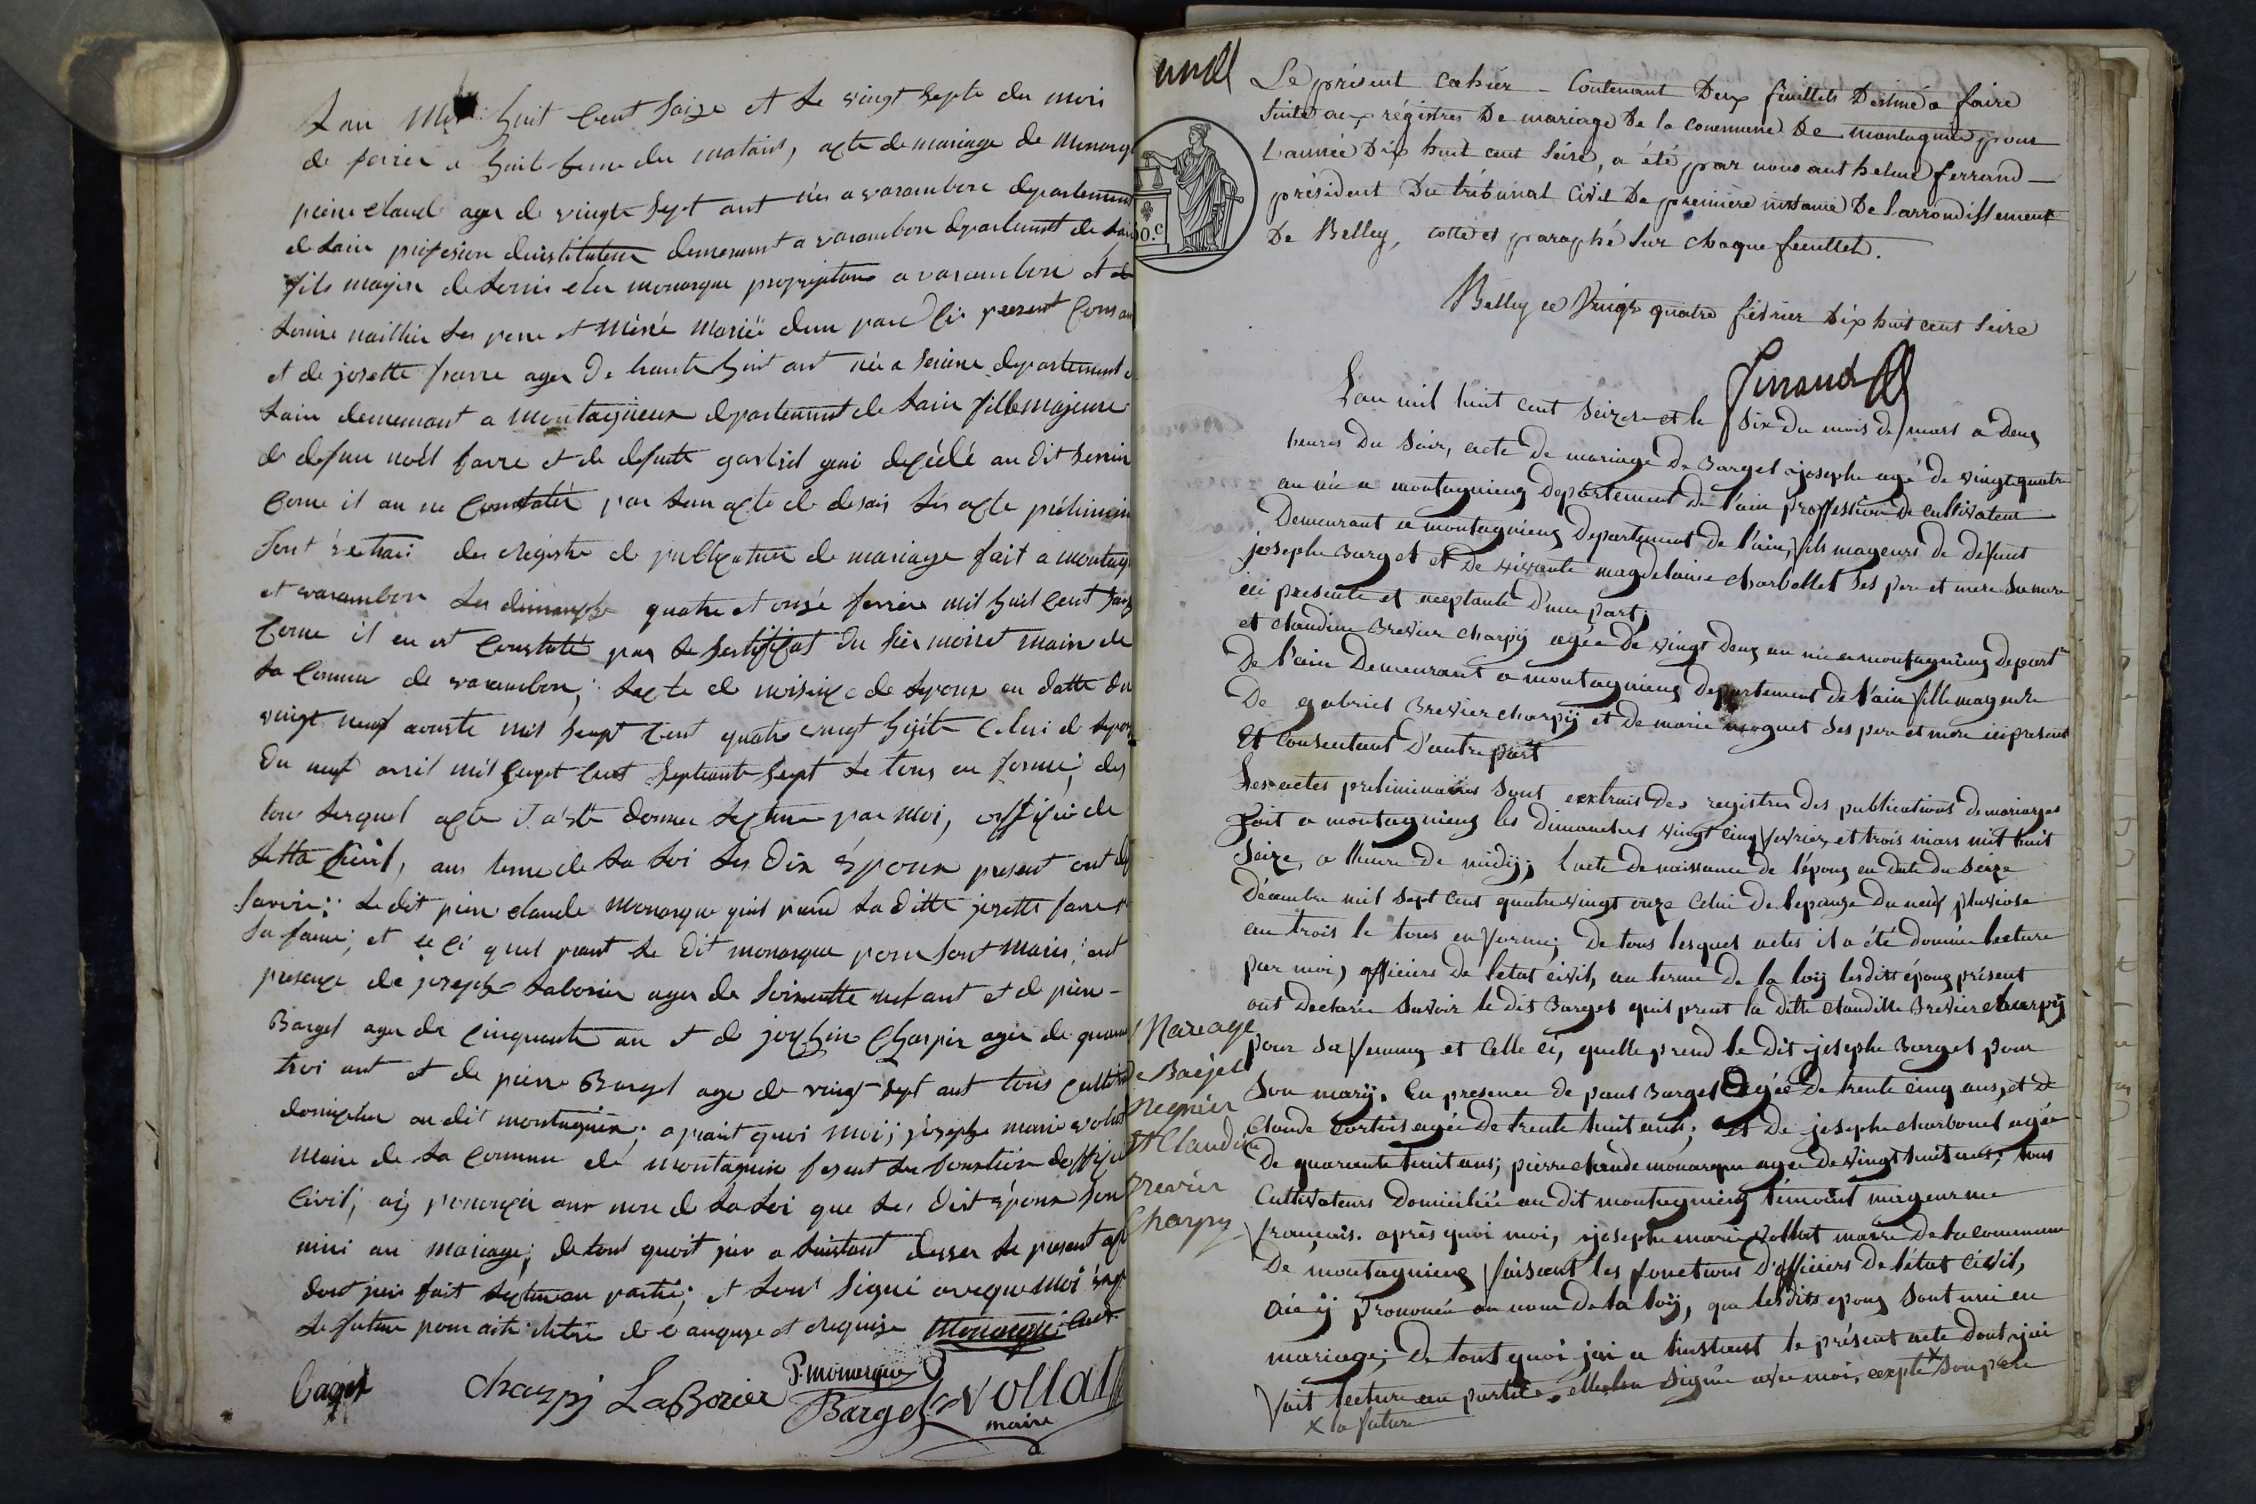 Lan Mil huit Cent Saize et Le vingt Septe du mois
de fevrier a huit heure du matains, acte de mariage de Monarq
piere claud ager de vingte Sept ant née a varambon departement
de Lain profesion dinstituteur demeurant a varambon departement de Lain
fils majire de Louis monarque propriptaire a varambon et de
Louise ses pere et Méré Mariée dun part present
et de josette favre ager De trante huit ant née a departement
Lain demeurant a Montagnieux departement de Lain fille majeure
de defun noël favre et de defunte décédé au dit
Come il an ne Constatée par Son acte de desais Les acte préliminair
Sont extrai des registre de publication de mariage fait a montag
et varambon Les dimanche quatre et onze fevrier mil huit Cent Saiz
Come il en est Constaté par Le Sertificat du maire de
La Comune de varambon; Lacte de de Lepoux en datte du
vingt neuf avouste mil Sept Cent quatre vingt huite Celui de Lepous
Du neuf avril mil Sept Cent Septante Sept Le tous en forme; des
tous Lesquel acte il a été donner Lecture par Moi, officié de
Letta Civil, aus terme de La Loi Les Dix époux present ont
Savoir; Le dit piere claude Monarque quil prand La ditte josette favre
Sa fame; et Celle Ci quel prant Le Dit monarque pour Sont Maris; ant
presence de joseph Laborier ager de Soixentte neuf ant et de piere
Bargel ager de Cinquante an et de Charpin ager de quarant
troi ant et de pierre Bargel age de vingt Sept ant tous Cultivat
domicilier au dit montagnieu; apraint quoi moi; joseph marie vollat
Maire de La Commune de montagnieu fesant Les fonction doffisier
Civil; aij prononcer aus nom de La Loi que Les Dit époux Son
unis an mariage; de tout quoit jei a Linstant desser Le present act
dont jeis fait Lecture au partie; et Sont Signé aveque Moi
La future pour aitre de ce anquize et requise Monarque
Baget charpij LaBorier P. monarque Bargel Vollat
maire
Le présent cahier - Contenant Deux feuillets Destiné a faire
Suite aux régistres De mariage de la commune De montagnieu pour
L'année Dix huit cent Seize, a été par nous anthelme ferrand
président Du tribunal Civil De première instance De l'arrondissement
De Belley, cotté et paraphé Sur chaque feuillet.
Belley ce Vingt quatre février Dix huit cent Seize
Ferrand
0.c
L'an mil huit cent Seize et le Six du mois de mars a deux
heures du Soir, acte de mariage de Bargel josephe agé de vingt quatre
an né a montagnieux departement de l'ain proffession de cultivateur
Demeurant a montagnieux departement de l'ain, fils mageurs de défunt
josephe Bargel et de vivante magdelaine charbollet Ses pere et mere Sa mere
ici presente et acceptante d'une part;
et claudine Brevier charpij agée de vingt deux an née a montagnieux depart
De l'ain Demeurant a montagnieux departement de l'ain fille mageure
De gabriel Brevier charpij et de marie Ses pere et mere ici présent
Et Consentant D'autre part
Les actes preliminaires Sont extrais des registres des publications de mariages
fait a montagnieux les dimanches vingt cinq fevrier et trois mars mil huit
Seize, a lheure de midij; lacte de naissance de l'époux en date du Seize
Décembre mil Sept Cent quatre vingt onze Celui de lepouze du neuf pluviose
an trois le tous en forme; De tous lesquels actes il a été donnée lecture
par moi, officiers de l'etat civil, au terme de la loij lesdits époux présent
ont declarée Savoir le dit Bargel quil prent la ditte claudine Brevier charpij
pour Sa femme et Celle Ci, quelle prend le dit josephe Bargel pour
Son marij. En presence de paul Bargel agée de trente cinq ans, et de
Claude Cortois agée de trente huit ans; et de josephe charbonel agée
De quarante huit ans; pierre claude monarque agée de vingt huit ans; tous
Cultivateurs Domicilié au dit montagnieux témoint mageur
français. après quoi moi, josephe marie vollat maire de la commune
De montagnieux faisant les fonctions D'officiers de l'état civil,
aie ij prononcée au nom de la loij, que lesdits epoux Sont uni en
mariage; De tout quoi jai a linstant le présent acte dont jai
fait lecture au partie. Signée avec moi, Son pere
x la future
Mareage
de Bargel
Regnier
et Claudine
Brevier
Charpy